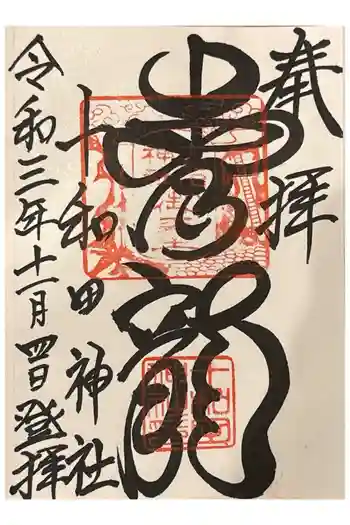 奉拝
青龍
十和田神社
令和三年十一月四日登拝